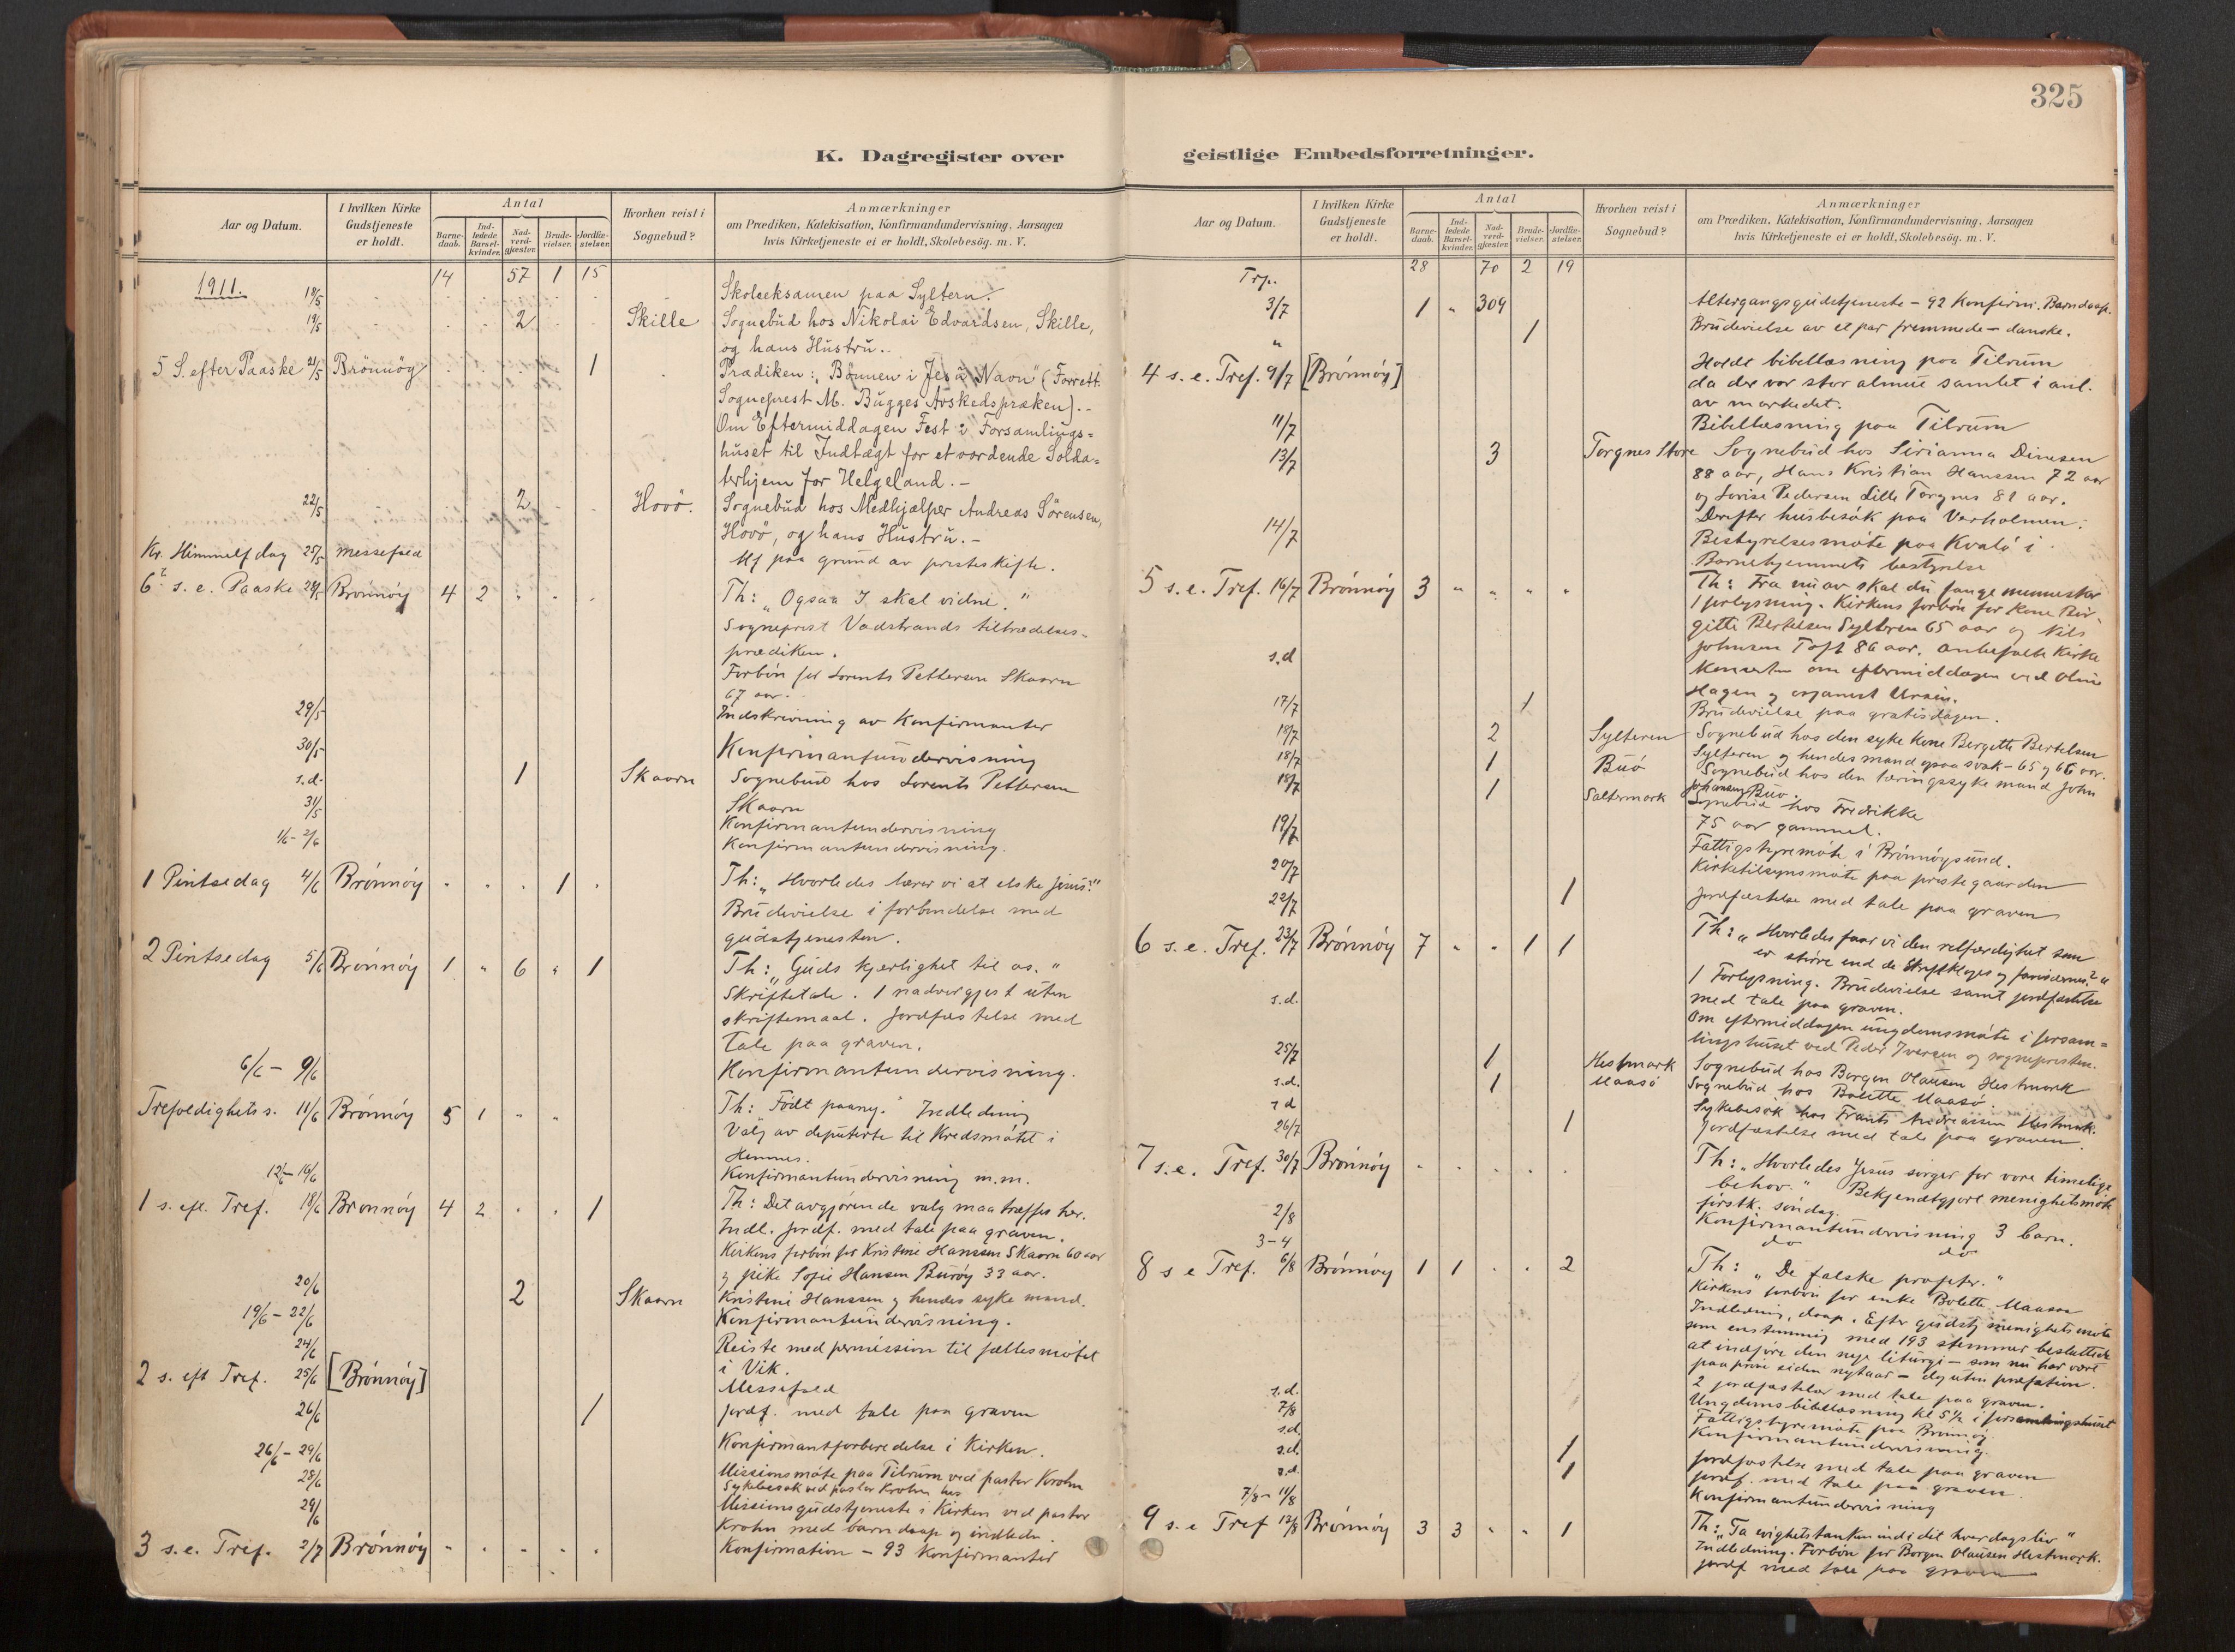 325
K. Dagregister over
Aar og Datum.
I hvilken Kirke Gudstjeneste er holdt.
Antal
Barne-daab.
Ind-ledede Barsel-kvinder.
Nad-verd-gjæster.
Brude-vielser.
Jordfæ-stelser.
Hvorhen reist i Sognebud?
Anmærkninger
om Prædiken, Katekisation, Konfirmandundervisning, Aarsagen
hvis Kirketjeneste ei er holdt, Skolebesög. m. V.
14 57 1 15
1911. 18/5 Skoleeksamen paa Syltern.
19/5 2 Skille Sognebud hos Nikolai Edvardsen, Skille,
og hans Hustru.
5 S. efter Paaske 21/5 Brönnög 1 Prædiken: "Bønnen i Jesu Navn" (Forrett.
Sogneprest M. Bugges Avskedspræken).-
Om Eftermiddagen Fest i Forsamlings=
huset til Indtægt for et vordende Solda=
terhjem for Helgeland.-
22/5 2 Hovö. Sognebud hos Medhjælper Andreas Sörensen,
Hovö, og hans Hustru.-
Kr. Himmelf dag 25/5 messefald
paa grund av presteskifte.
6te s. e. Paaske 28/5 Brønnøy 4 2 Th: "Ogsaa I skal vidne."
Sogneprest Vadstrands tiltrædelses-
prædiken.
Forbøn for Lorents Pettersen Skaarn
67 aar.
29/5 Indskrivning av Konfirmanter
30/5 Konfirmantundervisning
s.d. 1 Skaarn Sognebud hos Lorents Pettersen
Skaarn
31/5 Konfirmantundervisning
1/6 - 2/6 Konfirmantundervisning.
1 Pintsedag 4/6 Brønnøy 1 Th: "Hvorledes lærer vi at elske Jesus?"
Brudevielse i forbindelse med
gudstjenesten.
2 Pintsedag 5/6 Brønnøy 1 " 6 " 1 Th: "Guds kjærlighet til os."
Skriftetale. 1 nadvergjest uten
skriftemaal. Jordfæstelse med
tale paa graven.
6/6 - 9/6 Konfirmantundervisning.
Trefoldighets s. 11/6 Brønnøy 5 1 " " Th: Født paany." Indledning
Valg av deputerte til Kredsmøtet i
Hemnes.
12/6 - 16/6 Konfirmantundervisning m.m.
1 s. eft. Tref. 18/6 Brønnøy 4 2 1 Th: Det avgjørende valg maa træffes her.
Indl. Jordf. med tale paa graven.
Kirkens forbøn for Kristine Hanssen Skaarn 60 aar
og pike Sofie Hansen Burøy 33 aar.
20/6 2 Skaarn Kristine Hanssen og hendes syke mand.
19/6 - 22/6 Konfirmantundervisning.
24/6 Reiste med permission til fællesmøtet
i Vik.
2 s. eft Tref. 25/6 [Brønnøy] Messefald
26/6 1 Jordf. med tale paa graven
26/6 - 29/6 Konfirmantforberedelse i Kirken.
28/6 Missionsmøte paa Tilrum ved pastor Krohn
Sykebesøk ved pastor Krohn
29/6 Missionsgudstjeneste i Kirken ved pastor
Krohn med barndaap og indledn.
3 s. e. Tref. 2/7 Brønnøy Konfirmation - 93 Konfirmanter
geistlige Embedsforretninger.
Aar og Datum.
I hvilken Kirke Gudstjeneste er holdt.
Antal
Barne-daab.
Ind-ledede Barsel-kvinder.
Nad-verd-gjæster.
Brude-vielser.
Jordfæ-stelser.
Hvorhen reist i Sognebud?
Anmærkninger
om Prædiken, Katekisation, Konfirmandundervisning, Aarsagen
hvis Kirketjeneste ei er holdt, Skolebesög. m. V.
Trp. 28 70 2 19
3/7 1 " 304 Altergangsgudstjeneste - 92 Konfirm. Barndaap.
" 1 Brudevielse av et par fremmede - danske.
4 s. e. Tref. 9/7 [Brønnøy] Holdt bibellæsning paa Tilrum
da der var stor almue samlet i anl.
av markedet.
11/7 Bibellæsning paa Tilrum
13/7 3 Torgnes Store Sognebud hos Sirianna Dinesen
88 aar, Hans Kristian Hanssen 72 aar
og Lovise Pedersen Lille Torgnes 81 aar.
Derefter husbesøk paa Verholmen.
14/7 Bestyrelsesmøte paa Kvalø i
Barnehjemmets bestyrelse
5 s. e. Tref. 16/7 Brønnøy 3 " " " " Th: Fra nu av skal du fange mennesker
1 forlysning. Kirkens forbøn for Kone Bir-
gitte Bertelsen Sylteren 65 aar og Nils
Johnsen Toft 86 aar. Anbefalte Kirke
s.d Konserten om eftermiddagen ved Oline
Hagen og organist Ursin.
17/7 1 Brudevielse paa gratisdagen.
18/7 2 Sylteren Sognebud hos den syke Kone Bergette Bertelsen
Sylteren og hendes mand ogsaa svak - 65 og 66 aar.
18/7 1 Buø Sognebud hos den tæringssyke mand John
Johansen Buø.
18/7 1 Saltermark Sognebud hos Fredrikke
75 aar gammel.
19/7 Fattigstyremøte i Brønnøysund.
20/7 Kirketilsynsmøte paa prestegaarden
22/7 1 Jordfæstelse med tale paa graven
6 s. e. Tref. 23/7 Brønnøy 7 " " 1 1 Th: "Hvorledes faar vi den retfærdighet som
er større end de Skriftkloges og farisæernes?"
1 Forlysning. Brudevielse samt jordfæstelse
med tale paa graven.
s.d. Om eftermiddagen ungdomsmøte i forsam=
lingshuset ved Peder Iversen og sognepresten.
25/7 1 Hestmark Sognebud hos Borgen Olausen Hestmark
s.d. 1 Maasø Sognebud hos Bolette Maasø.
s d Sykebesøk hos Frants Andreassen Hestmark.
26/7 1 Jordfæstelse med tale paa graven.
7 s. e. Tref. 30/7 Brønnøy Th: "Hvorledes Jesus sørger for vore timelige
behov." Bekjendtgjort menighetsmøte
førstk. søndag.
2/8 Konfirmantundervisning 3 barn.
3-4 do do
8 s e Tref. 6/8 Brønnøy 1 1 . . 2 Th: "De falske profeter."
Kirkens forbøn for enke Bolette Maasø
Indledning, daap. Efter gudstj menighetsmøte
som enstemmig med 193 stemmer besluttede
at indføre den nye liturgi - som nu har vært
paa prøve siden nytaar - dog uten præfation.
2 jordfæstelser med tale paa graven.
s.d. Ungdomsbibellæsning kl 5½ i forsamlingshuset
7/8 Fattigstyremøte paa Brønnøy
s.d. Konfirmantundervisning.
s.d. 1 Jordfæstelse med tale paa graven
s.d. 1 Jordf. med tale paa graven.
7/8 - 11/8 Konfirmantundervisning
9 s. e Tref 13/8 Brønnøy 3 3 " " 1 Th: "Ta evighetstanken ind i det hverdagsliv"
Indledning. Forbøn for Borgen Olausen Hestmark.
Jordf med tale paa graven